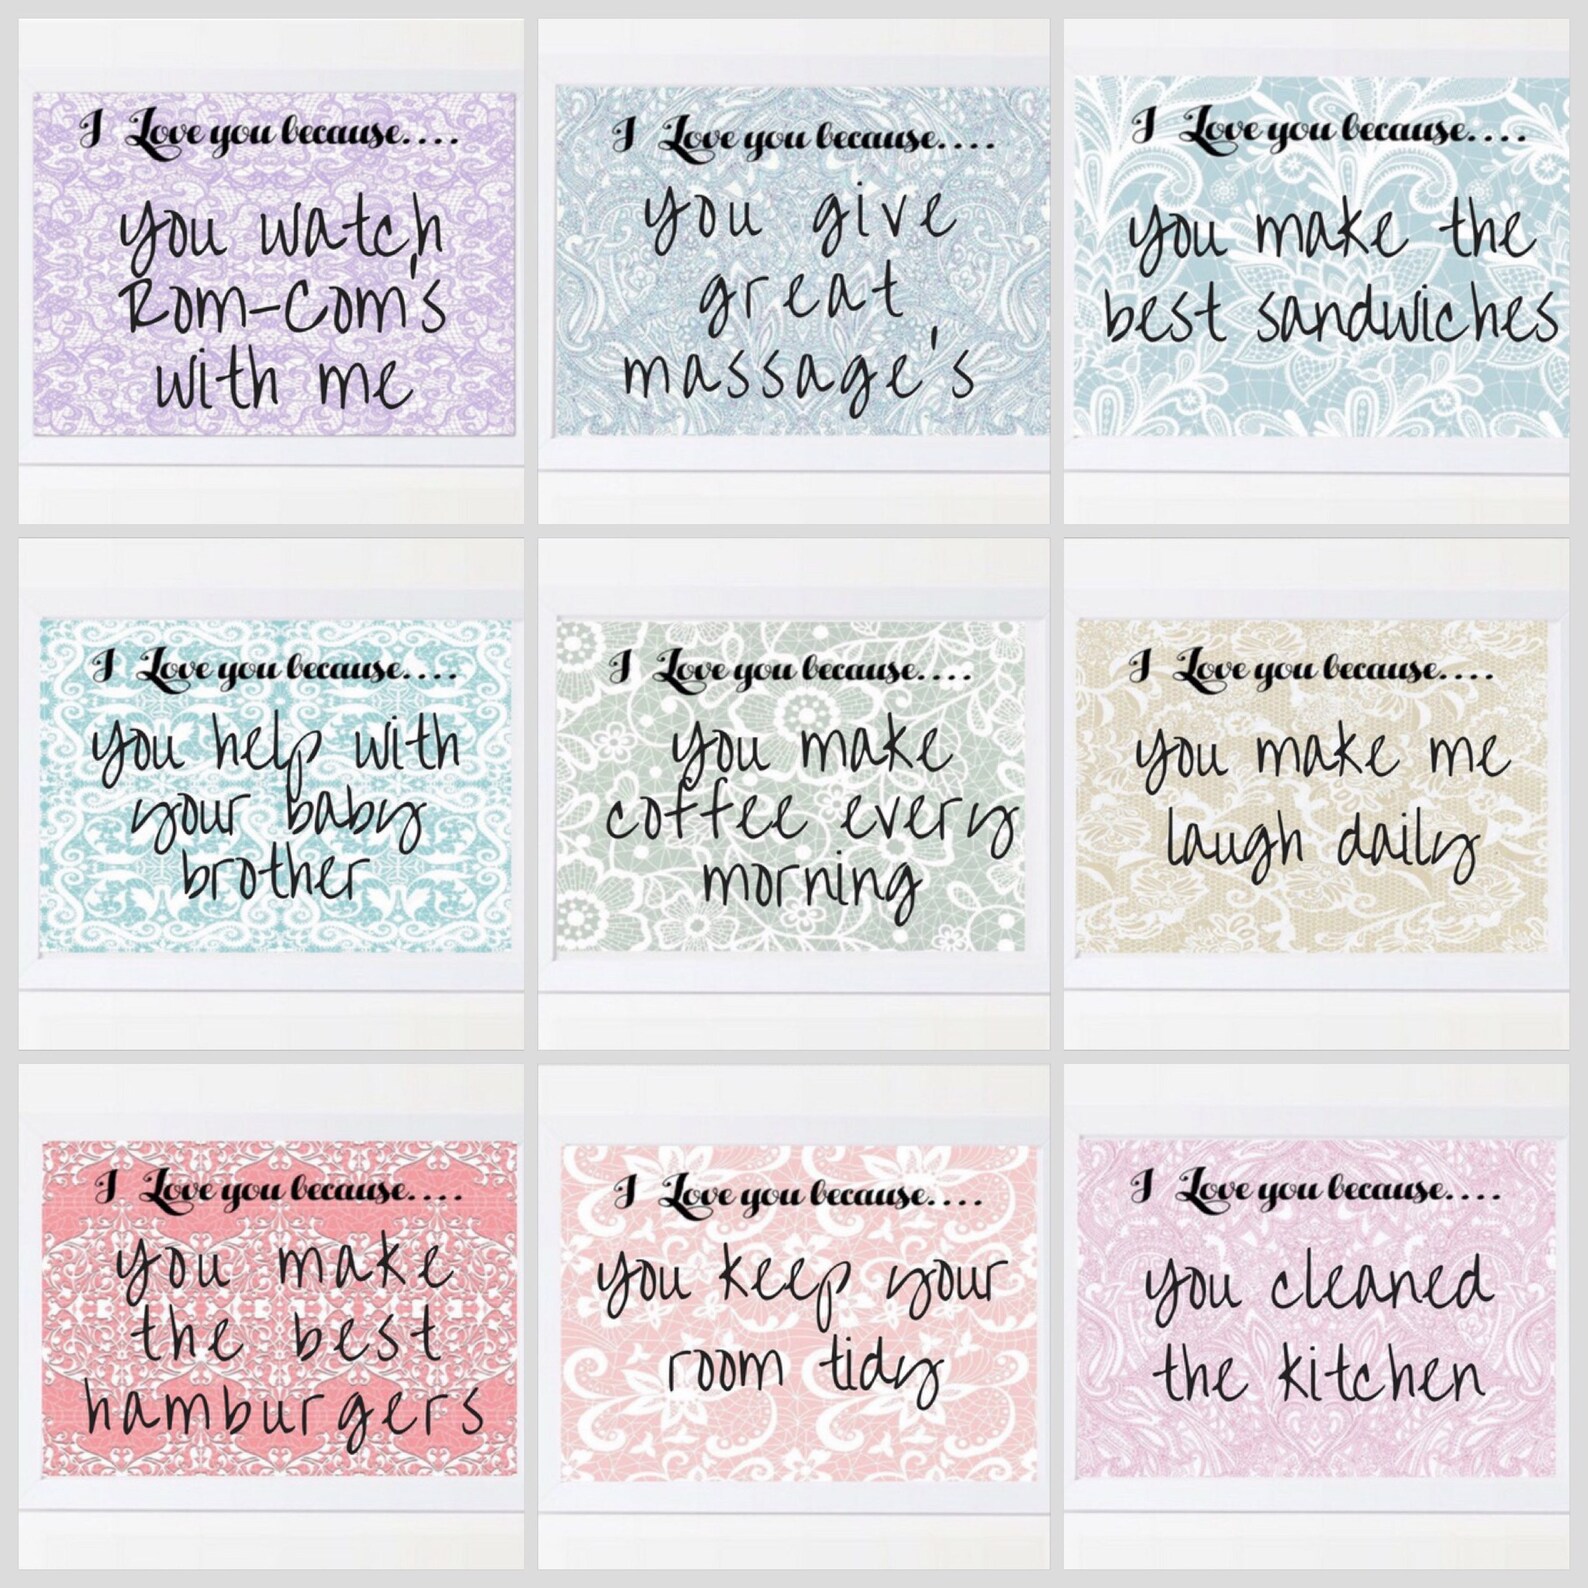 I Love you because....
you watch
Rom-Com's
with me
I Love you because....
you give
great
massage's
I Love you because....
you make the
best sandwiches
I Love you because....
you help with
your baby
brother
I Love you because....
you make
coffee every
morning
I Love you because....
you make me
laugh daily
I Love you because....
you make
the best
hamburgers
I Love you because....
you keep your
room tidy
I Love you because....
you cleaned
the kitchen